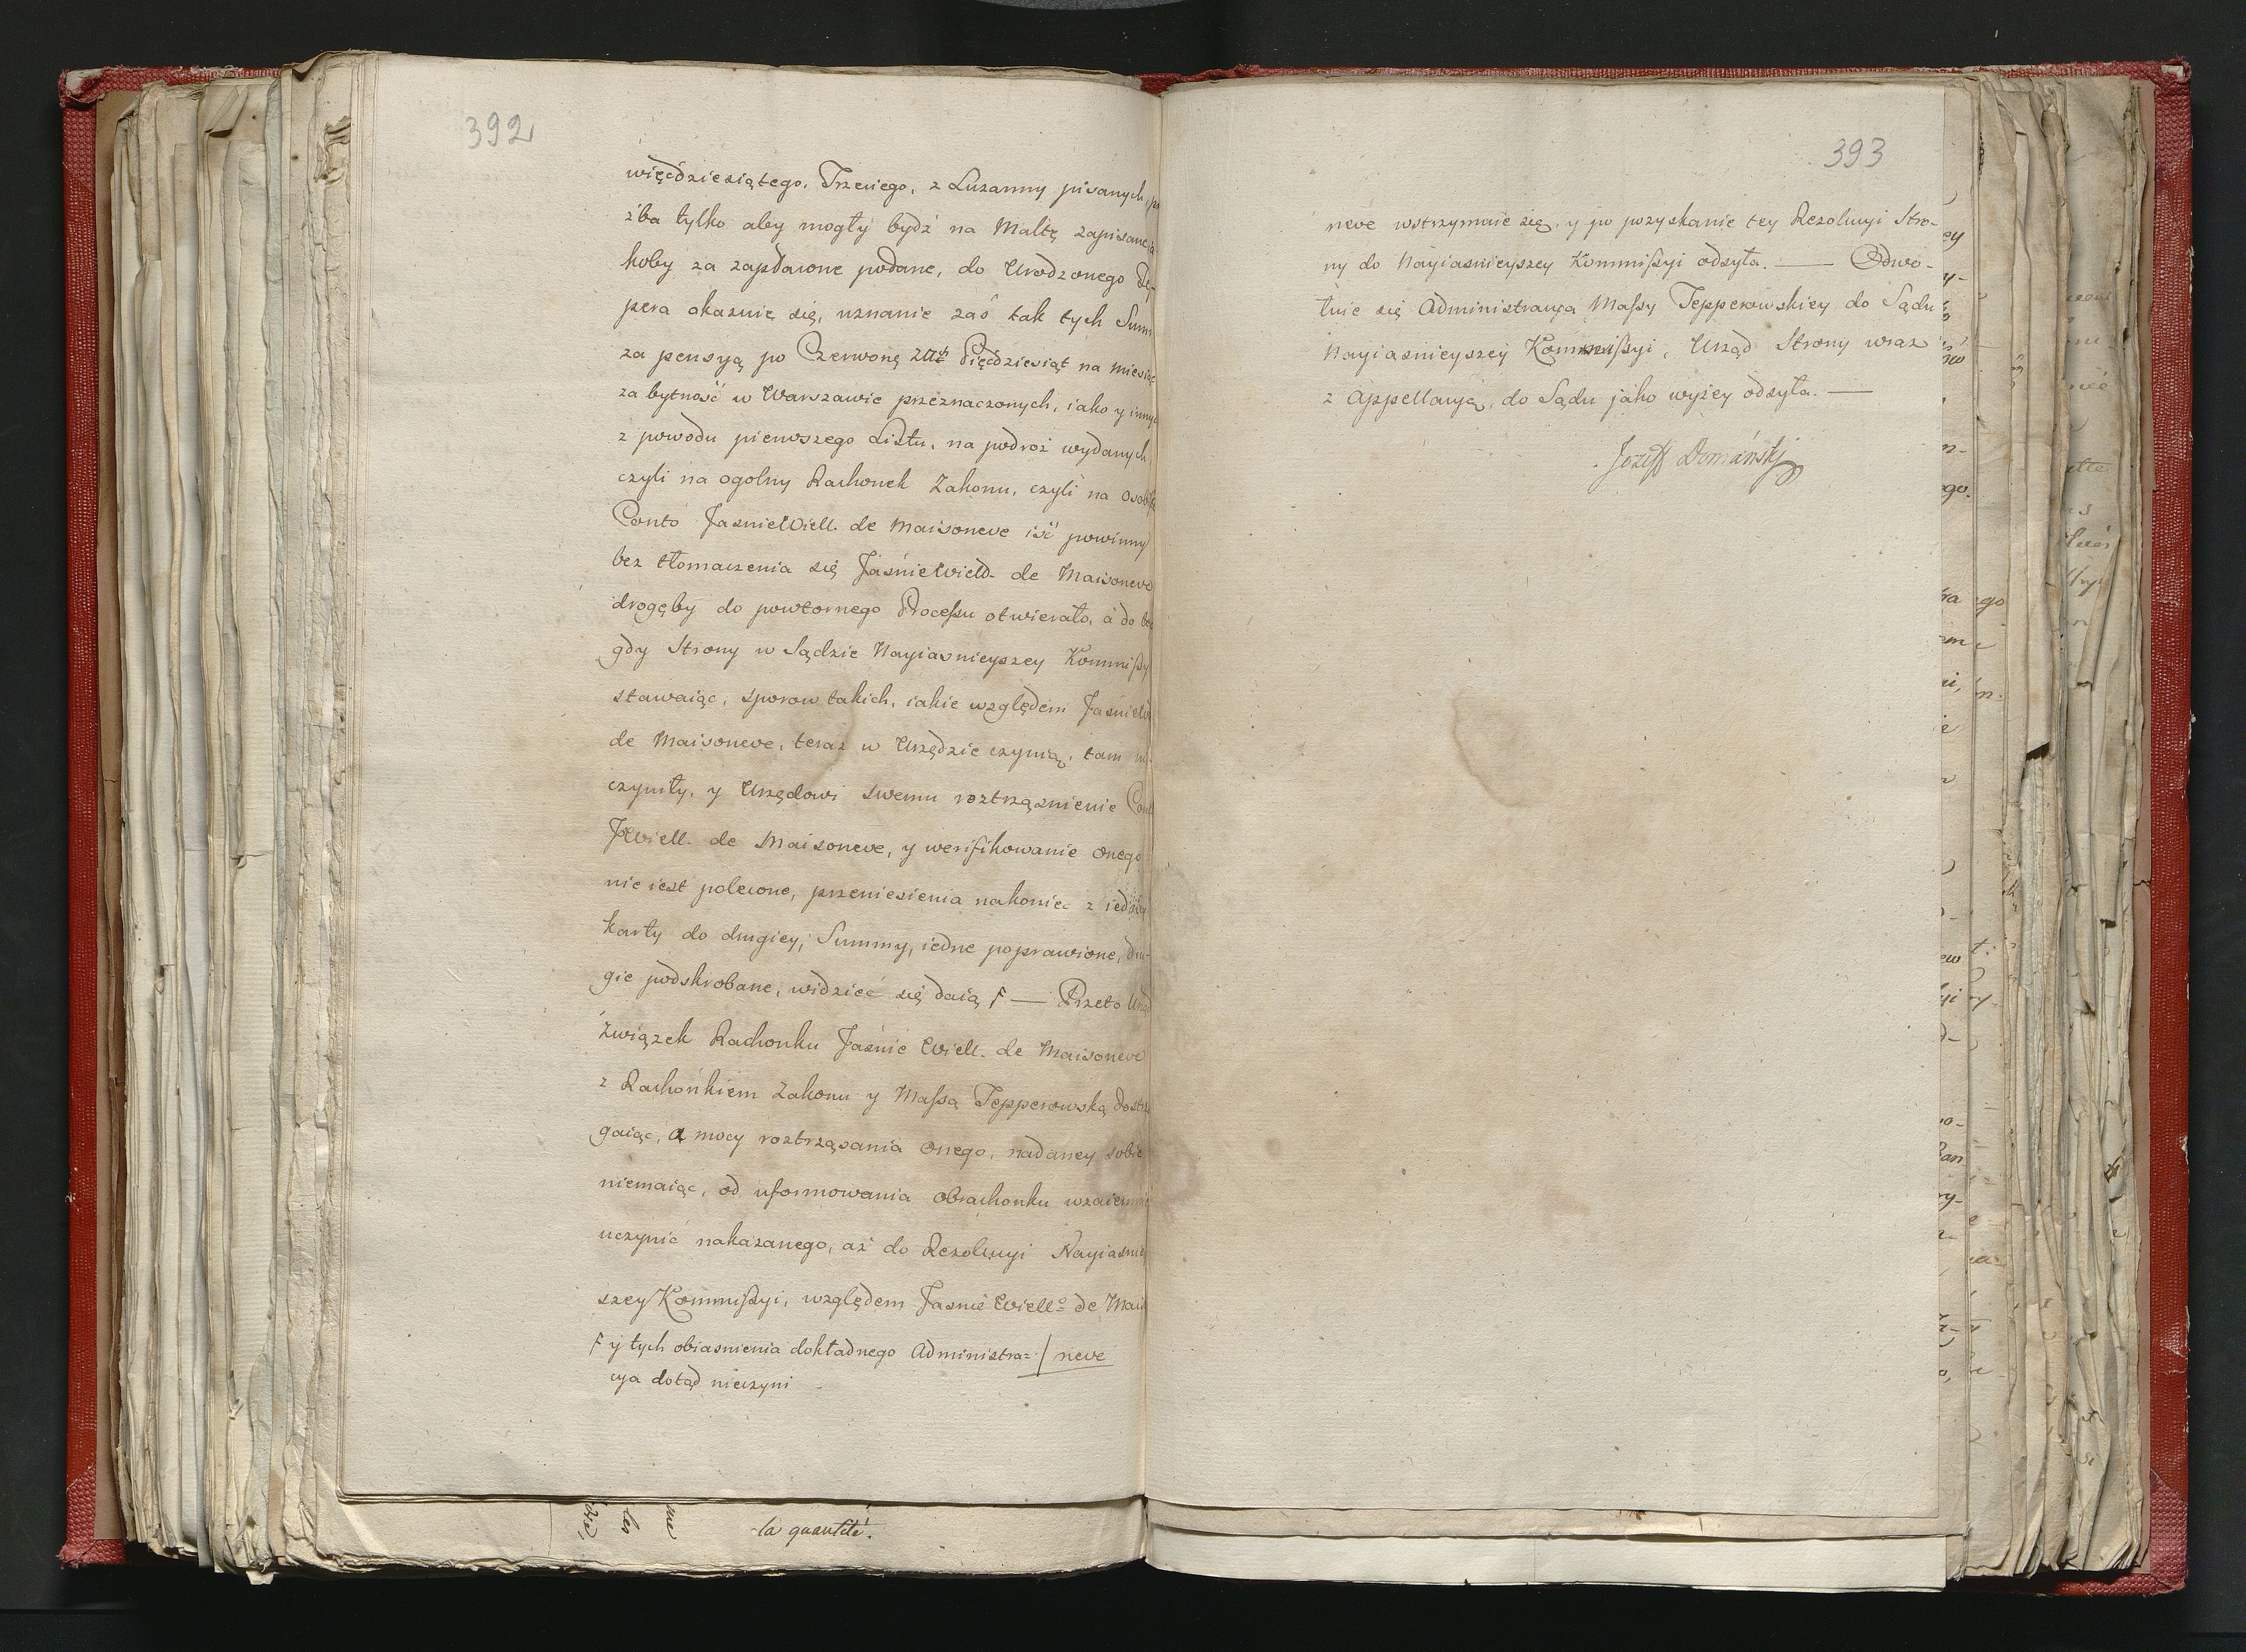 392
więćdziesiątego. Trzeciego, z Luzanny pisanych,
źba tylko aby mogły bydź na Maltę zapisane
koby za zapłacone podane, do Urodzonego Te-
pera okazuie się, uznanie zaś tak tych Summ
za pensyą po Czerwonę Złłch Pięćdziesiąt na miesiąc
za bytność w Warszawie przeznaczonych, iako y innych
z powodu pierwszego Listu, na podroż wydanych,
czyli na ogolny Rachonek Zakonu, czyli na osobiste
Conto JasnieWiell. de Maisoneve iść powinny
bez tłomaczenia się JaśnieWiell. de Maisoneve
drogęby do powtornego Processu otwierało, a do
gdy Strony w Sądzie Nayiasnieyszey Kommissyi
stawaiąc, sporow takich, iakie względem JasnieW
de Maisoneve, teraz w Urzędzie czynią, tam nie
czyniły, y Urzędowi swemu roztrząśnienie Conta
JWiell. de Maisoneve, y weryfikowanie onego
nie iest polecone, przeniesienia nakoniec z iedney
karty do drugiey, Summy, iedne poprawione, dru-
gie podskrobane, widzieć się daią F — Przeto Urząd
Związek Rachonku Jaśnie Wiell. de Maisoneve
z Rachonkiem Zakonu y Massą Tepperowską dostrze
gaiąc, a mocy roztrząsania onego, nadaney sobie
niemaiąc, od uformowania obrachonku wzaiemnie
uczynić nakazanego, aż do Rezolucyi Nayiasniey
szey Kommissyi, względem Jasnie Wiello de Maiso
F y tych obiasnienia dokładnego Administra= / neve
cya dotąd nieczyni
la quantité.
393
neve wstrzymuie się, y po pozyskanie tey Rezolucyi Stro-
ny do Nayiasnieyszey Kommissyi odsyła. — Odwo-
łuie się Administracya Massy Tepperowskiey do Sądu
Nayiasnieyszey Kommissyi, Urząd Strony wraz
z Appellacyą, do Sądu jako wyżey odsyła. —
Jozeff Domański